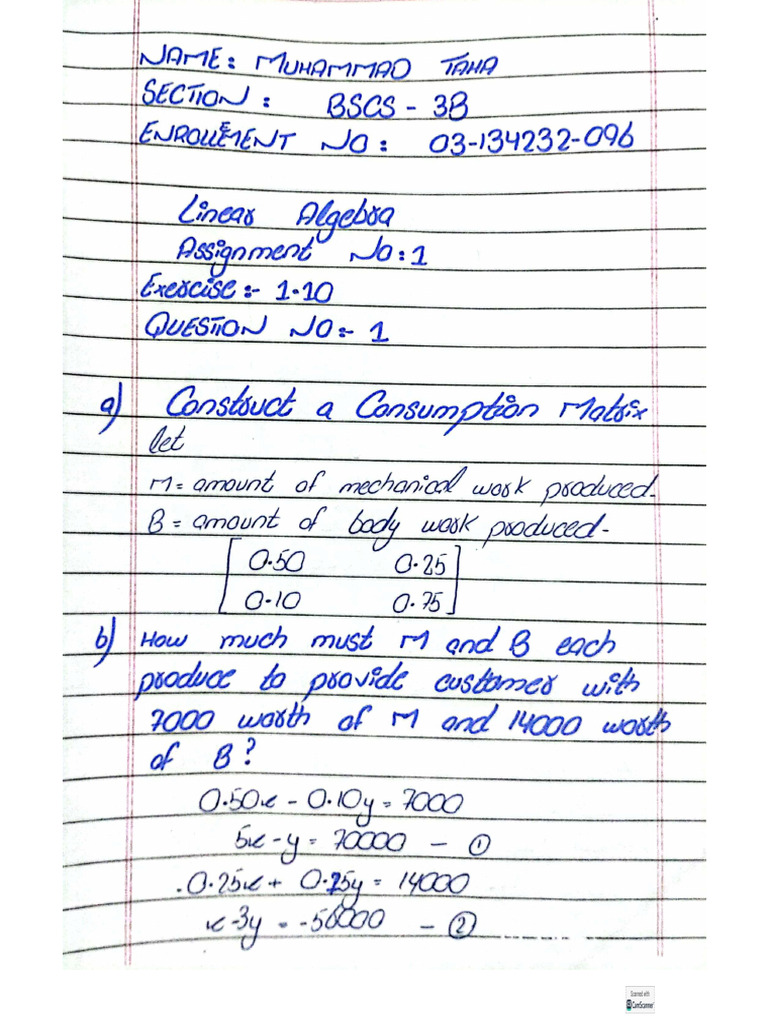 NAME: MUHAMMAD TAHA
SECTION: BSCS - 3B
ENROLLEMENT NO: 03-134232-096
Linear Algebra
Assignment No:1
Exercise:- 1.10
QUESTION NO:- 1
a) Construct a Consumption Matrix
let
M = amount of mechanical work produced.
B = amount of body work produced.
0.50 0.25
0.10 0.75
b) How much must M and B each
produce to provide customer with
7000 worth of M and 14000 worth
of B?
0.50x - 0.10y = 7000
5x - y = 70000 - ①
-0.25x + 0.75y = 14000
x - 3y = -56000 - ②
Scanned with
CamScanner